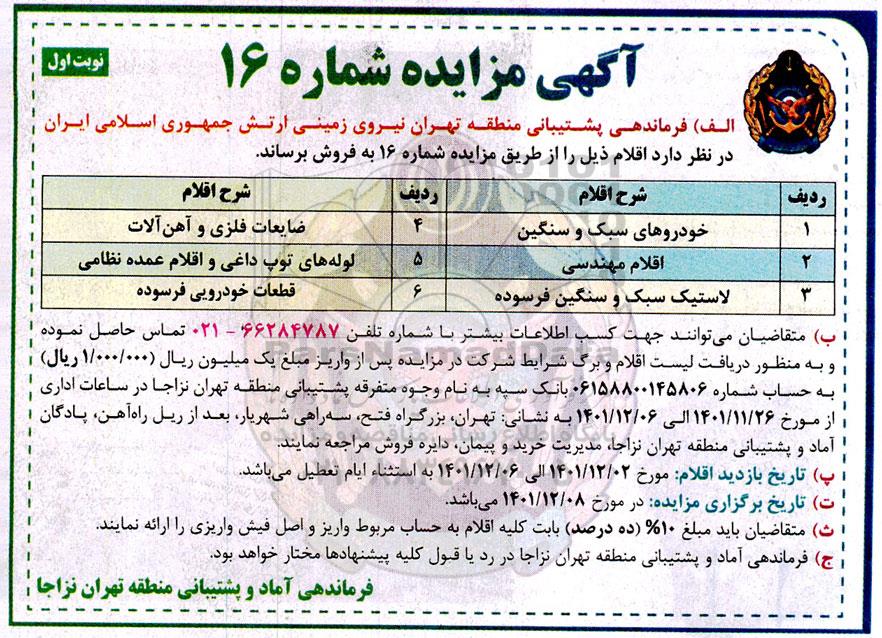 نوبت اول
آگهی مزایده شماره ۱۶
الف) فرماندهی پشتیبانی منطقه تهران نیروی زمینی ارتش جمهوری اسلامی ایران
در نظر دارد اقلام ذیل را از طریق مزایده شماره ۱۶ به فروش برساند.
ردیف شرح اقلام ردیف شرح اقلام
۱ خودروهای سبک و سنگین ۴ ضایعات فلزی و آهن‌آلات
۲ اقلام مهندسی ۵ لوله‌های توپ داغی و اقلام عمده نظامی
۳ لاستیک سبک و سنگین فرسوده ۶ قطعات خودرویی فرسوده
ب) متقاضیان می‌توانند جهت کسب اطلاعات بیشتر با شماره تلفن ۶۶۲۸۴۷۸۷ - ۰۲۱ تماس حاصل نموده
و به منظور دریافت لیست اقلام و برگ شرایط شرکت در مزایده پس از واریز مبلغ یک میلیون ریال (۱/۰۰۰/۰۰۰ ریال)
به حساب شماره ۰۶۱۵۸۸۰۰۱۴۵۸۰۶ بانک سپه به نام وجوه متفرقه پشتیبانی منطقه تهران نزاجا در ساعات اداری
از مورخ ۱۴۰۱/۱۱/۲۶ الی ۱۴۰۱/۱۲/۰۶ به نشانی: تهران، بزرگراه فتح، سه‌راهی شهریار، بعد از ریل راه‌آهن، پادگان
آماد و پشتیبانی منطقه تهران نزاجا، مدیریت خرید و پیمان، دایره فروش مراجعه نمایند.
پ) تاریخ بازدید اقلام: مورخ ۱۴۰۱/۱۲/۰۲ الی ۱۴۰۱/۱۲/۰۶ به استثناء ایام تعطیل می‌باشد.
ت) تاریخ برگزاری مزایده: در مورخ ۱۴۰۱/۱۲/۰۸ می‌باشد.
ث) متقاضیان باید مبلغ ۱۰% (ده درصد) بابت کلیه اقلام به حساب مربوط واریز و اصل فیش واریزی را ارائه نمایند.
ج) فرماندهی آماد و پشتیبانی منطقه تهران نزاجا در رد یا قبول کلیه پیشنهادها مختار خواهد بود.
فرماندهی آماد و پشتیبانی منطقه تهران نزاجا